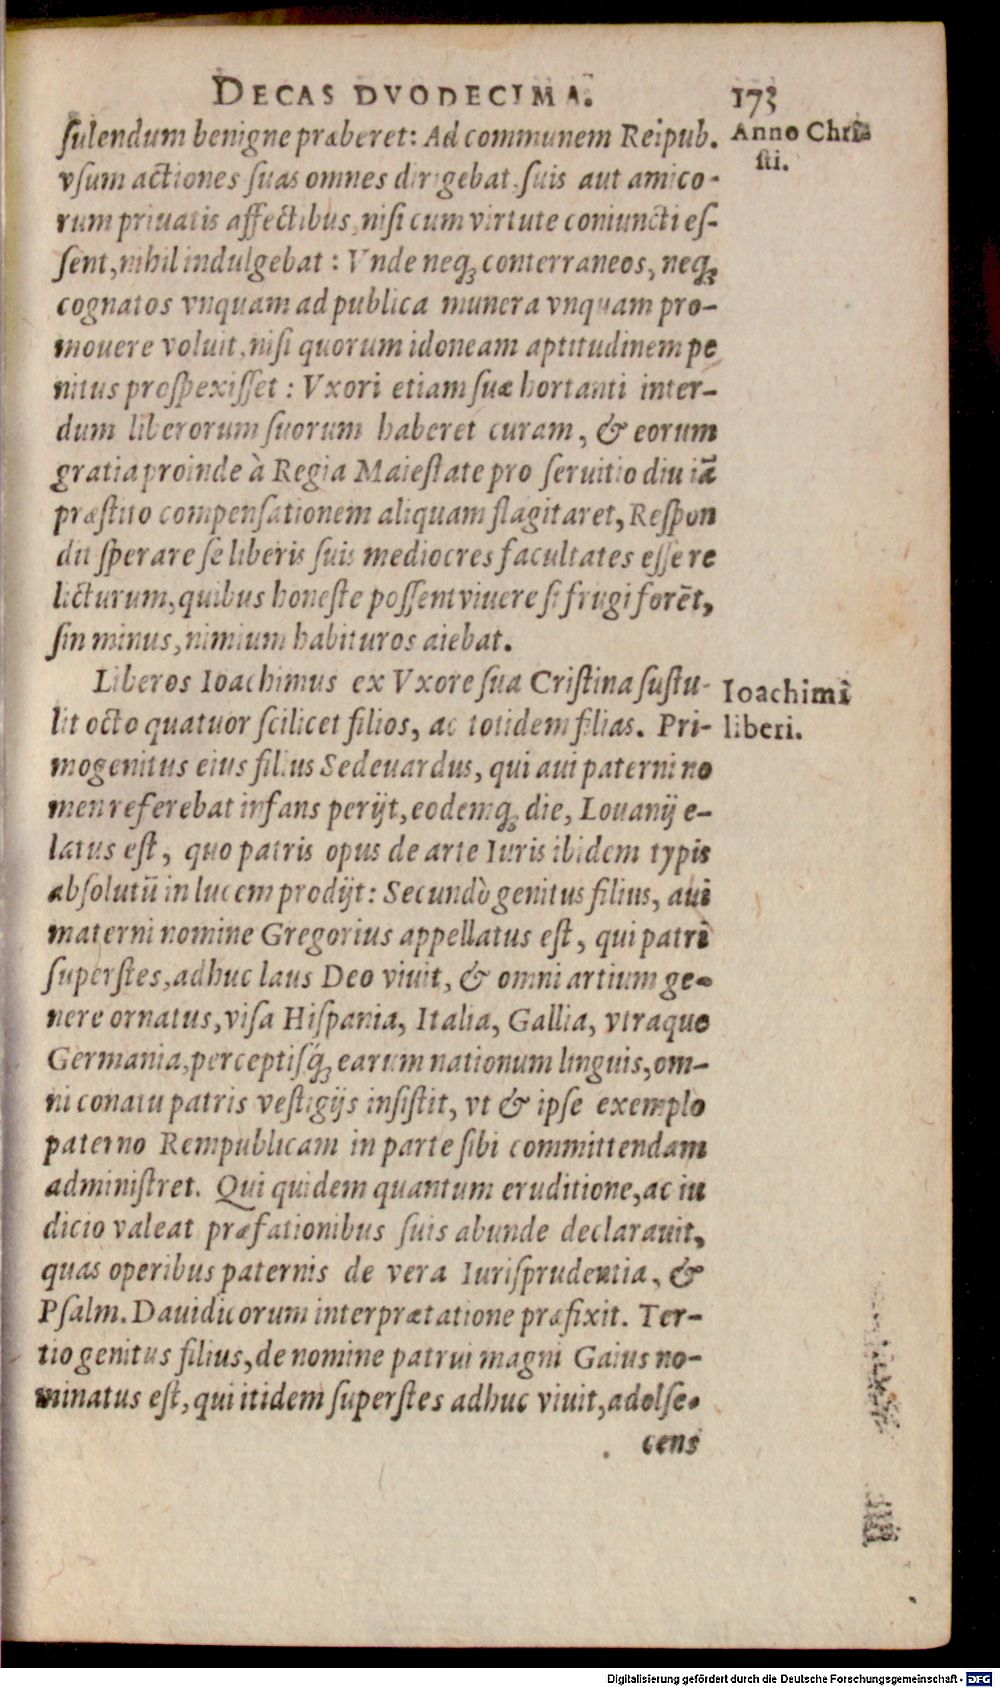 DECAS DVODECIMA. 173
ſulendum benigne præberet: Ad communem Reipub.
Anno Chri-
ſti.
vſum actiones ſuas omnes dirigebat, ſuis aut amico-
rum priuatis affectibus, niſi cum virtute coniuncti eſ-
ſent, nihil indulgebat : Vnde neq; conterraneos, neq;
cognatos vnquam ad publica munera vnquam pro-
mouere voluit, niſi quorum idoneam aptitudinem pe
nitus proſpexiſſet : Vxori etiam ſuæ hortanti inter-
dum liberorum ſuorum haberet curam, & eorum
gratia proinde à Regia Maieſtate pro ſeruitio diu iã
præſtito compenſationem aliquam flagitaret, Reſpon
dit ſperare ſe liberis ſuis mediocres facultates eſſe re
licturum, quibus honeſte poſſent viuere ſi frugi forẽt,
ſin minus, nimium habituros aiebat.
Liberos Ioachimus ex Vxore ſua Criſtina ſuſtu-
Ioachimi
liberi.
lit octo quatuor ſcilicet filios, ac totidem filias. Pri-
mogenitus eius filius Sedeuardus, qui aui paterni no
men referebat infans perijt, eodemq; die, Louanij e-
latus eſt, quo patris opus de arte Iuris ibidem typis
abſolutũ in lucem prodijt: Secundò genitus filius, aui
materni nomine Gregorius appellatus eſt, qui patri
ſuperſtes, adhuc laus Deo viuit, & omni artium ge-
nere ornatus, viſa Hiſpania, Italia, Gallia, vtraque
Germania, perceptiſq́; earum nationum linguis, om-
ni conatu patris veſtigijs inſiſtit, vt & ipſe exemplo
paterno Rempublicam in parte ſibi committendam
adminiſtret. Qui quidem quantum eruditione, ac iu
dicio valeat præfationibus ſuis abunde declarauit,
quas operibus paternis de vera Iuriſprudentia, &
Pſalm. Dauidicorum interprætatione præfixit. Ter-
tio genitus filius, de nomine patrui magni Gaius no-
minatus eſt, qui itidem ſuperſtes adhuc viuit, adolſe-
cens
Digitalisierung gefördert durch die Deutsche Forschungsgemeinschaft - DFG